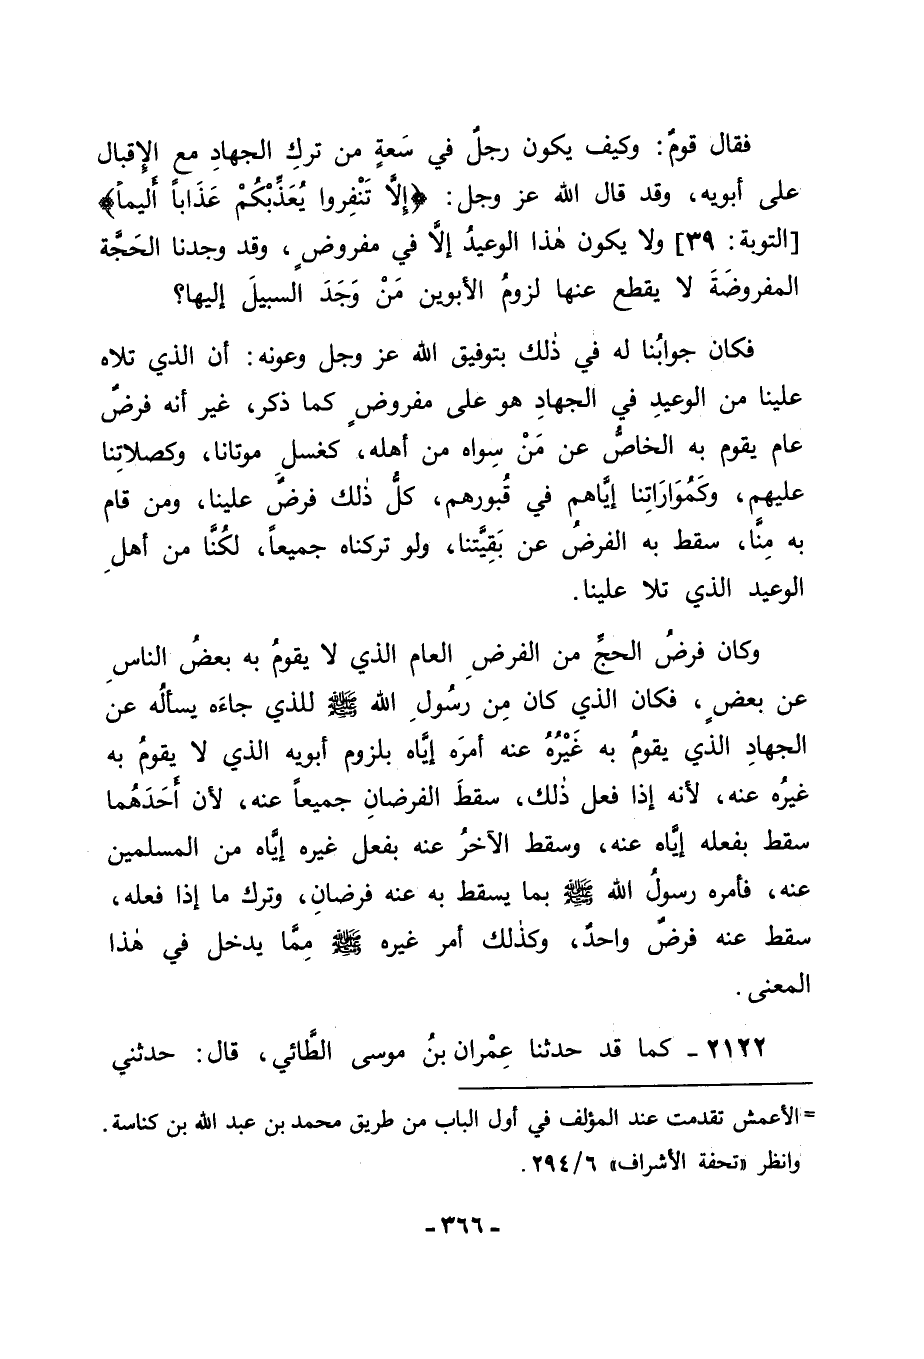 فقال قومٌ: وكيف يكون رجلٌ في سَعةٍ من تركِ الجهادِ مع الإِقبال
على أبويه، وقد قال الله عز وجل: ﴿إِلَّا تَنْفِروا يُعَذِّبْكُمْ عَذَاباً أَليماً﴾
[التوبة: ٣٩] ولا يكون هٰذا الوعيدُ إلَّا في مفروضٍ، وقد وجدنا الحَجَّة
المفروضَةَ لا يقطع عنها لزومُ الأبوين مَنْ وَجَدَ السبيلَ إليها؟
فكان جوابُنا له في ذٰلك بتوفيق الله عز وجل وعونه: أن الذي تلاه
علينا من الوعيدِ في الجهادِ هو على مفروضٍ كما ذكر، غير أنه فرضٌ
عام يقوم به الخاصُّ عن مَنْ سِواه من أهله، كغسلِ موتانا، وكصلاتِنا
عليهم، وكَمُوَارَاتِنا إيَّاهم في قُبورهم، كلُّ ذٰلك فرضٌ علينا، ومن قام
به مِنَّا، سقط به الفرضُ عن بَقِيَّتنا، ولو تركناه جميعاً، لكُنَّا من أهلِ
الوعيد الذي تلا علينا.
وكان فرضُ الحجِّ من الفرضِ العام الذي لا يقومُ به بعضُ الناسِ
عن بعضٍ، فكان الذي كان مِن رسُولِ الله ﷺ للذي جاءَه يسألُه عن
الجهادِ الذي يقومُ به غَيْرُهُ عنه أمرَه إيَّاه بلزوم أبويه الذي لا يقومُ به
غيرُه عنه، لأنه إذا فعل ذٰلك، سقطَ الفرضانِ جميعاً عنه، لأن أَحَدَهُما
سقط بفعله إيَّاه عنه، وسقط الآخرُ عنه بفعل غيره إيَّاه من المسلمين
عنه، فأمره رسولُ الله ﷺ بما يسقط به عنه فرضانِ، وترك ما إذا فعله،
سقط عنه فرضٌ واحدٌ، وكذٰلك أمر غيره ﷺ مِمَّا يدخل في هٰذا
المعنى.
٢١٢٢ - كما قد حدثنا عِمْران بنُ موسى الطَّائي، قال: حدثني
=الأعمش تقدمت عند المؤلف في أول الباب من طريق محمد بن عبد الله بن كناسة.
وانظر «تحفة الأشراف» ٢٩٤/٦.
- ٣٦٦ -